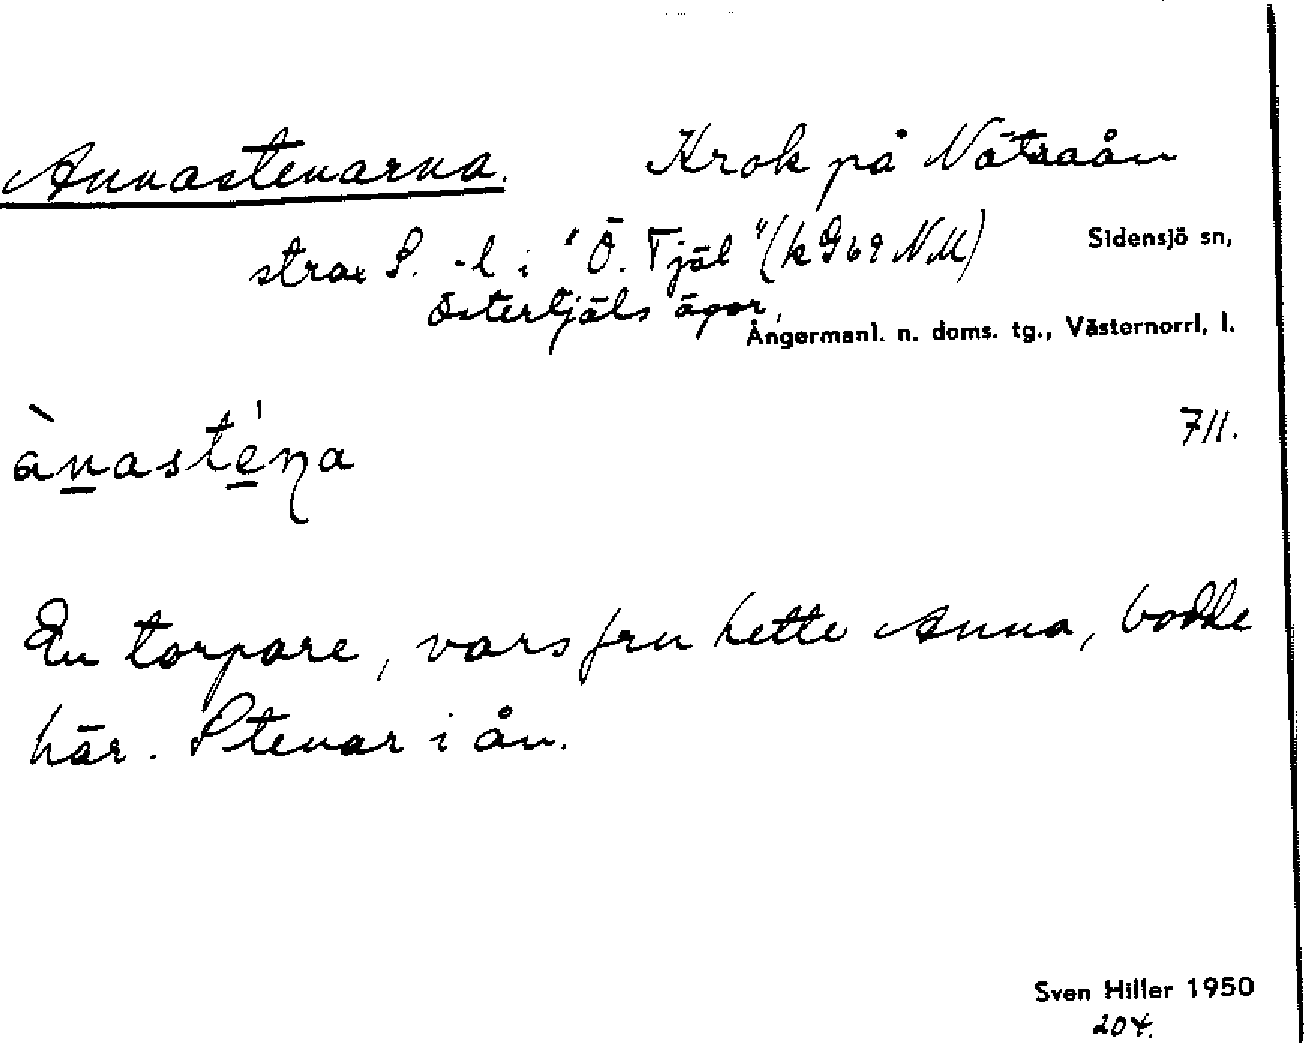 Annastenarna. Krok på Nätraån
strax S. -l i "Ö. Tjäl" (k 9b9 NM)
Sidensjö sn,
Östertjäls ägor,
Ångermanl. n. doms. tg., Västernorrl. l.
7/11.
ànasténa
En torpare, vars fru hette Anna, bodde
här. Stenar i ån.
Sven Hiller 1950
204.